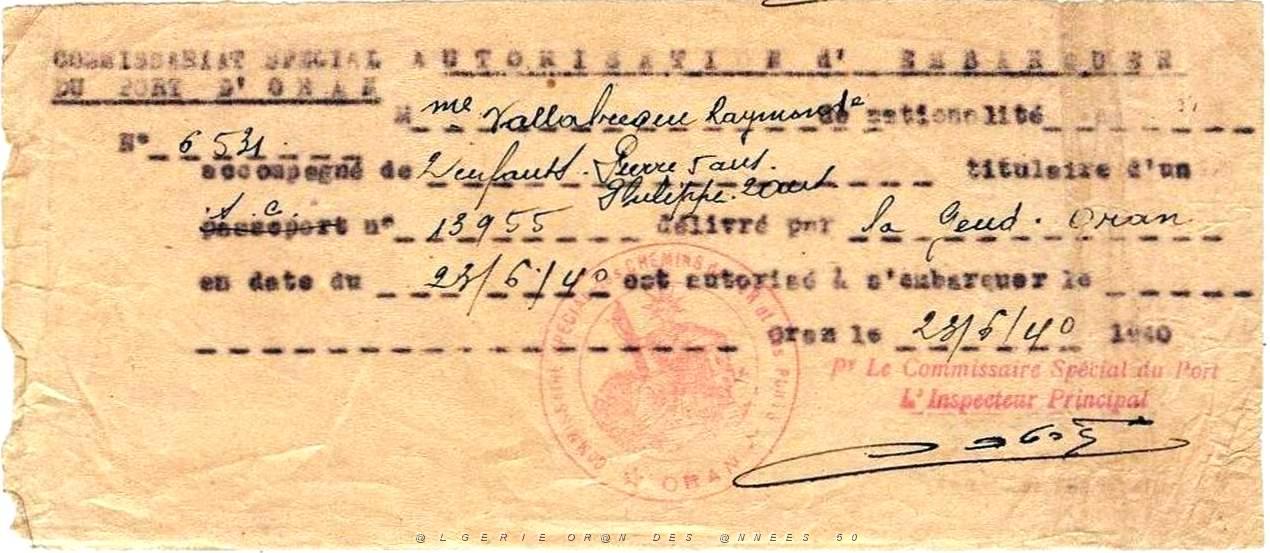 COMMISSARIAT SPECIAL AUTORISATION d' EMBARQUER
DU PORT D'ORAN
Mme Vallabregue Raymonde de nationalité
N° 6531
accompagné de 2 enfants. Pierre 5 ans. titulaire d'un
Philippe. 2 ans
S.C.
passeport n° 13955 délivré par la Gend. Oran
en date du 23/6/40 est autorisé à s'embarquer le
Oran le 23/6/40 1940
Pr Le Commissaire Spécial du Port
L'Inspecteur Principal
COMMISSAIRE SPECIAL DES CHEMINS DE FER et des Ports
ORAN
@LGERIE OR@N DES @NNEES 60